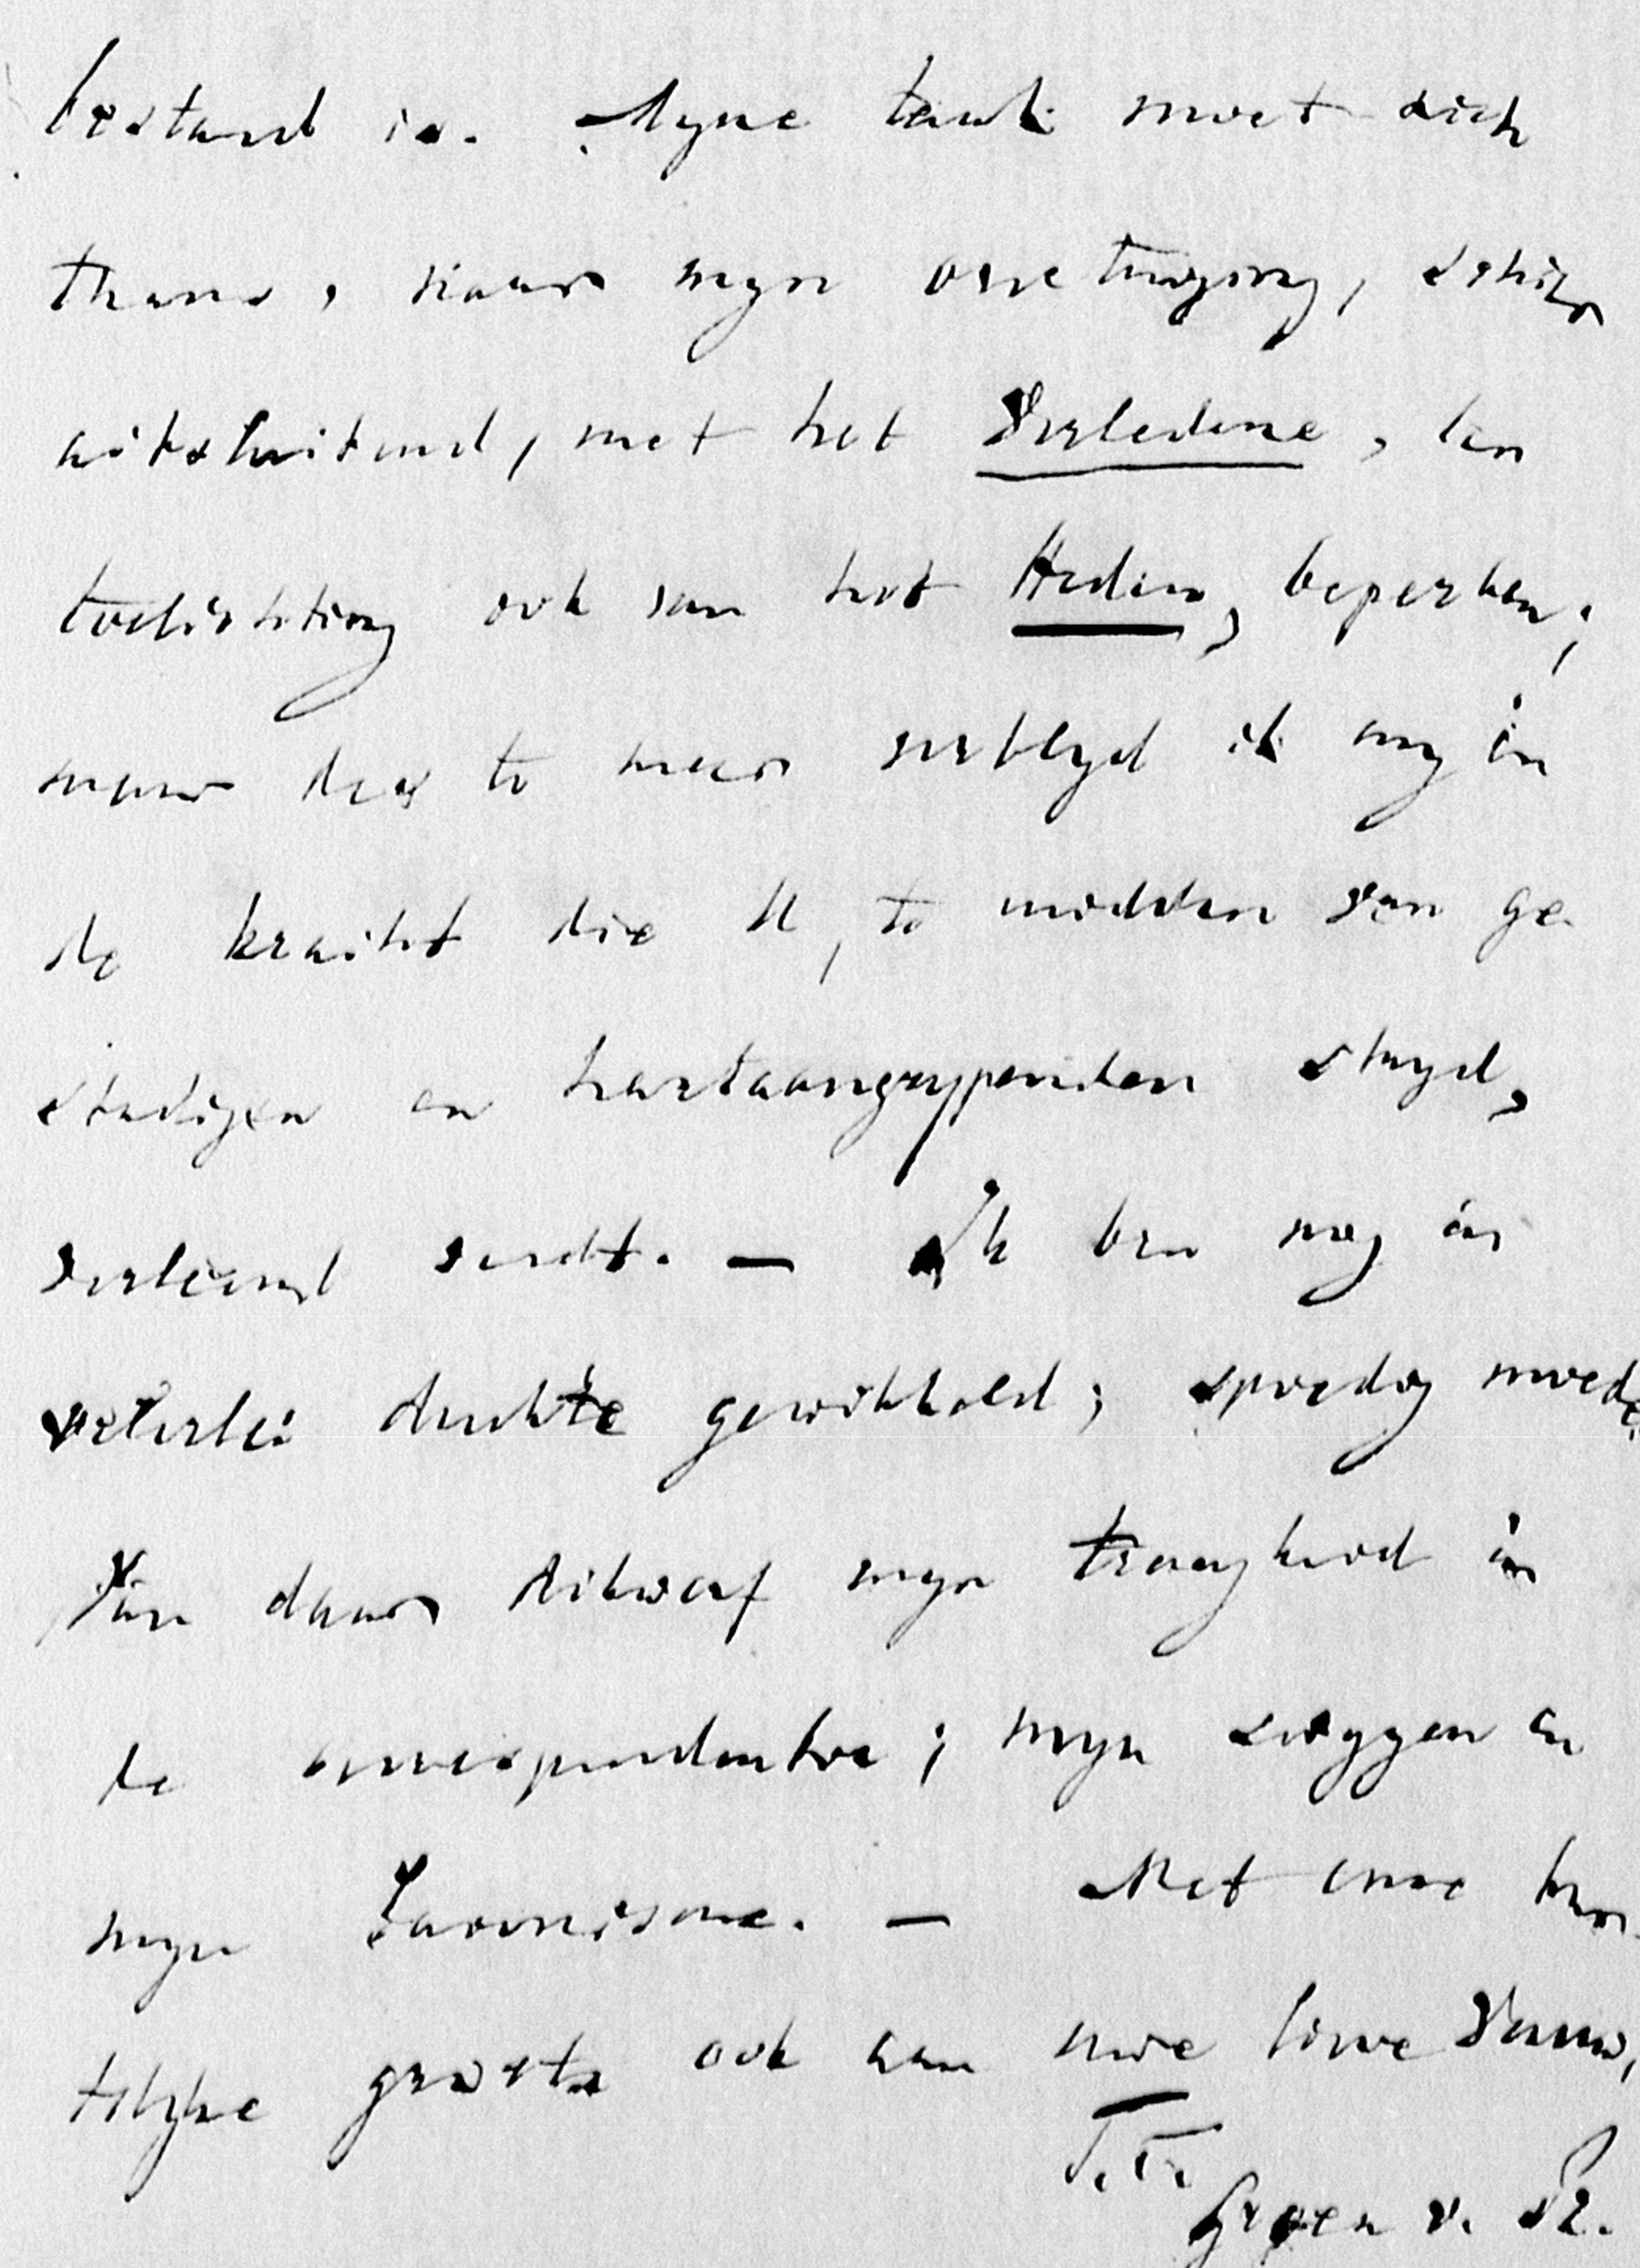 bestand is. Myne taak moet zich
thans, naar myn overtuiging, schier
uitsluitend, met het Verledene, ter
toelichting ook van het Heden, beperken;
maar des te meer verblyd ik my in
de kracht die U, te midden van ge-
stadigen en hartaangrypenden stryd,
verleend wordt. — Ik ben nog in
velerlei drukte gewikkeld; spoedig moede
Van daar dikwerf myn traagheid in
de correspondentie; myn zwygen en
myn Laconisme. — Met onze har-
telyke groete ook aan uwe lieve Vrouw,
T.t.
Groen v. Pr.